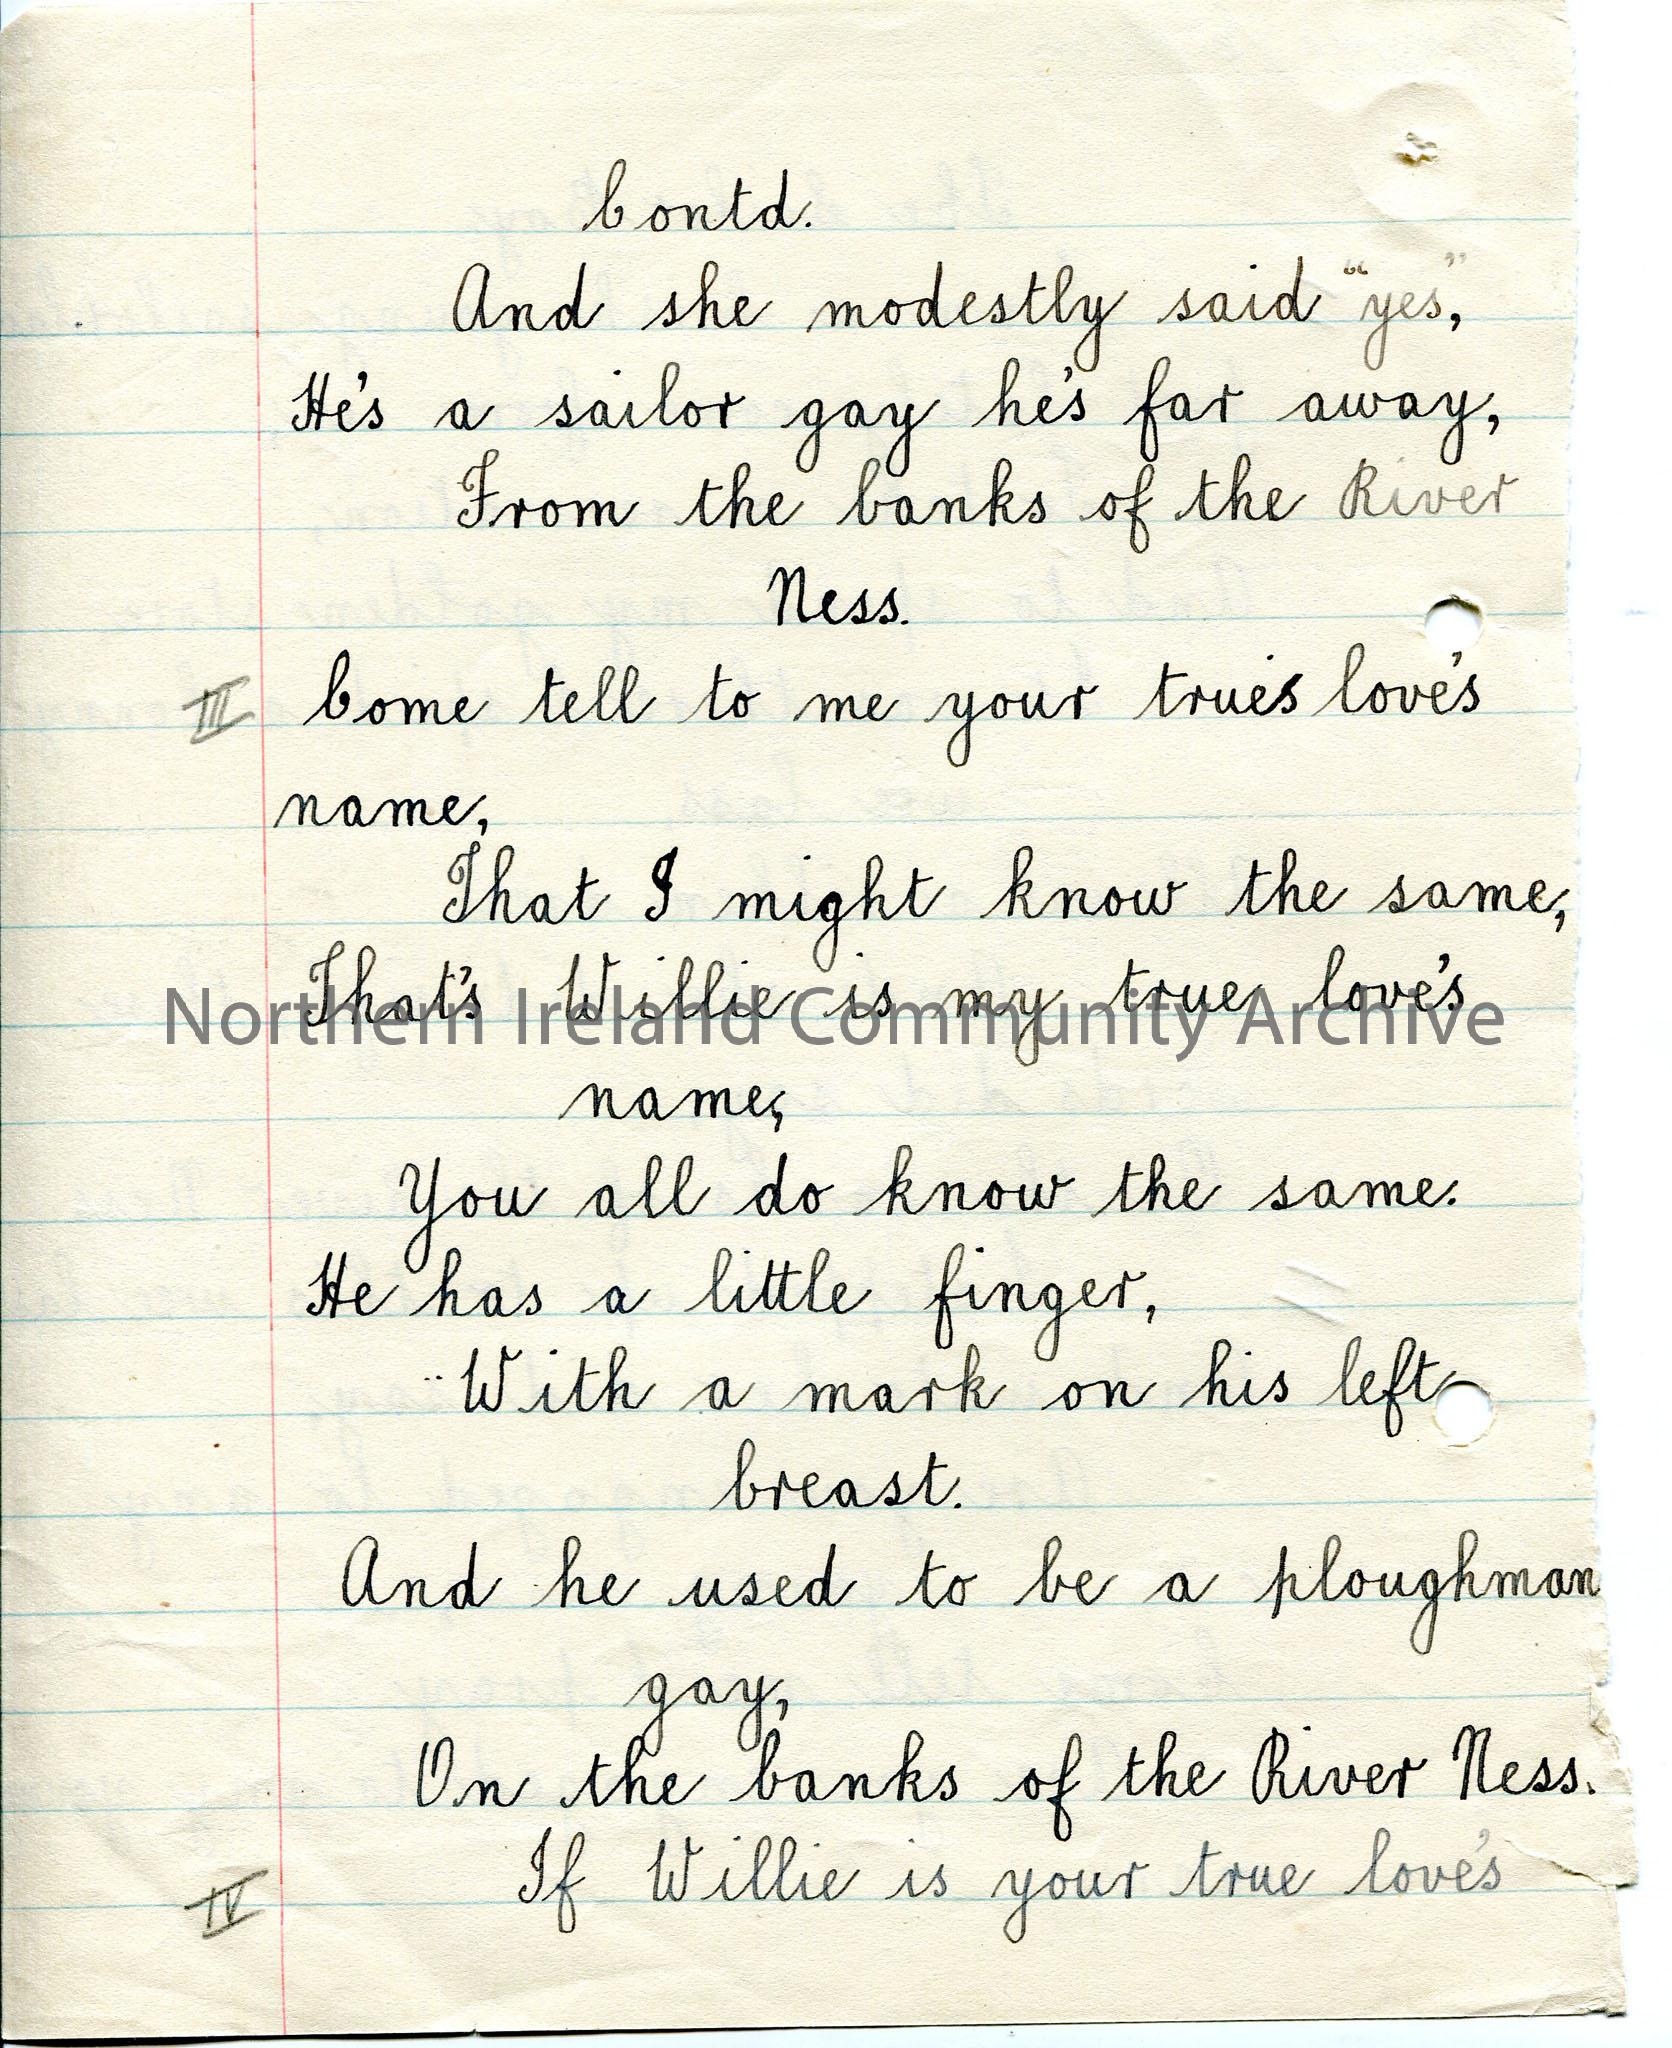 Contd.
And she modestly said "yes",
He's a sailor gay he's far away,
From the banks of the River
Ness.
III Come tell to me your true's love's
name,
That I might know the same,
That's Willie is my true love's
Northern Ireland Community Archive
name,
You all do know the same.
He has a little finger,
With a mark on his left
breast.
And he used to be a ploughman
gay,
On the banks of the River Ness.
IV If Willie is your true love's